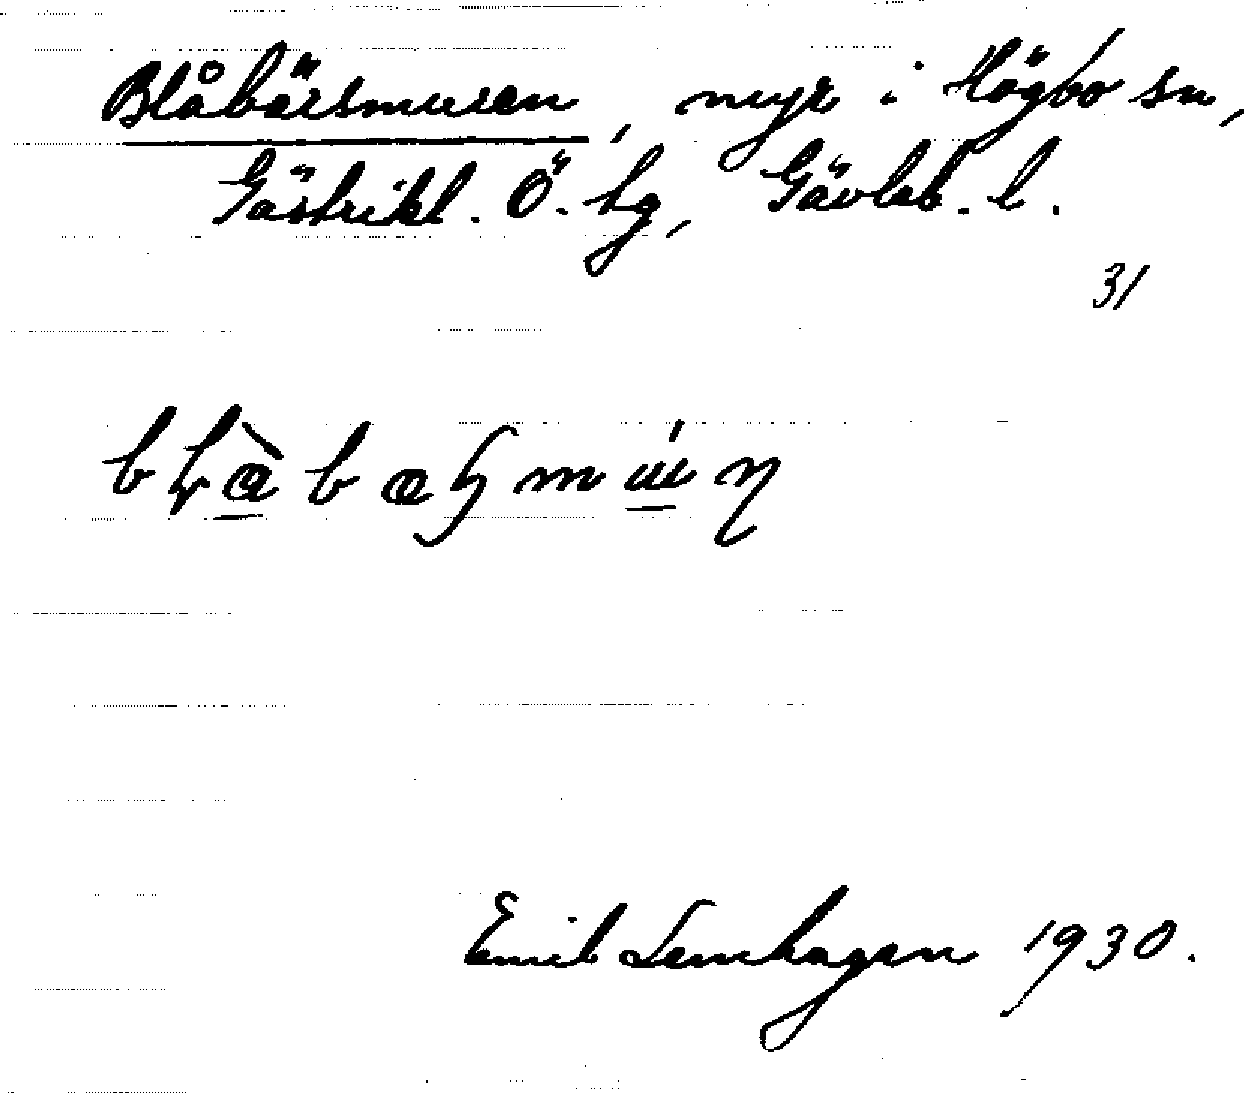 Blåbärsmuren, myr i Högbo sn,
Gästrikl. Ö. tg, Gävleb. l.
31
Emil Lenhagen 1930.